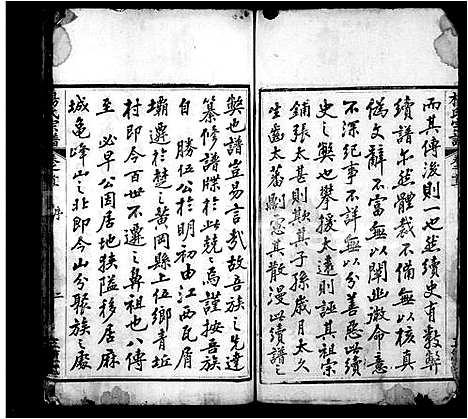 而其傳後則一也然續史自穀弊
續譜尓然體裁不備無以核真
偽文辭不富無以闡幽微命意
不深紀事不詳無以分善惡此續
史之弊也攀援太遠則誣其祖宗
鋪張太甚則欺其子孫歲月太久
生齒太蕃則惡其散漫此續譜之
弊也譜豈易言哉故吾族之先達
纂修譜牒於此兢之焉謹按吾族
自勝伍公於明初由江西瓦屑
壩遷於楚之黃岡縣上伍鄉青址
村即今百世不遷之鼻祖也八傳
至必早公因居地狹隘移居麻
城龜峰山之北即今山分聚族之處
楊氏宗譜 卷之首 序 二